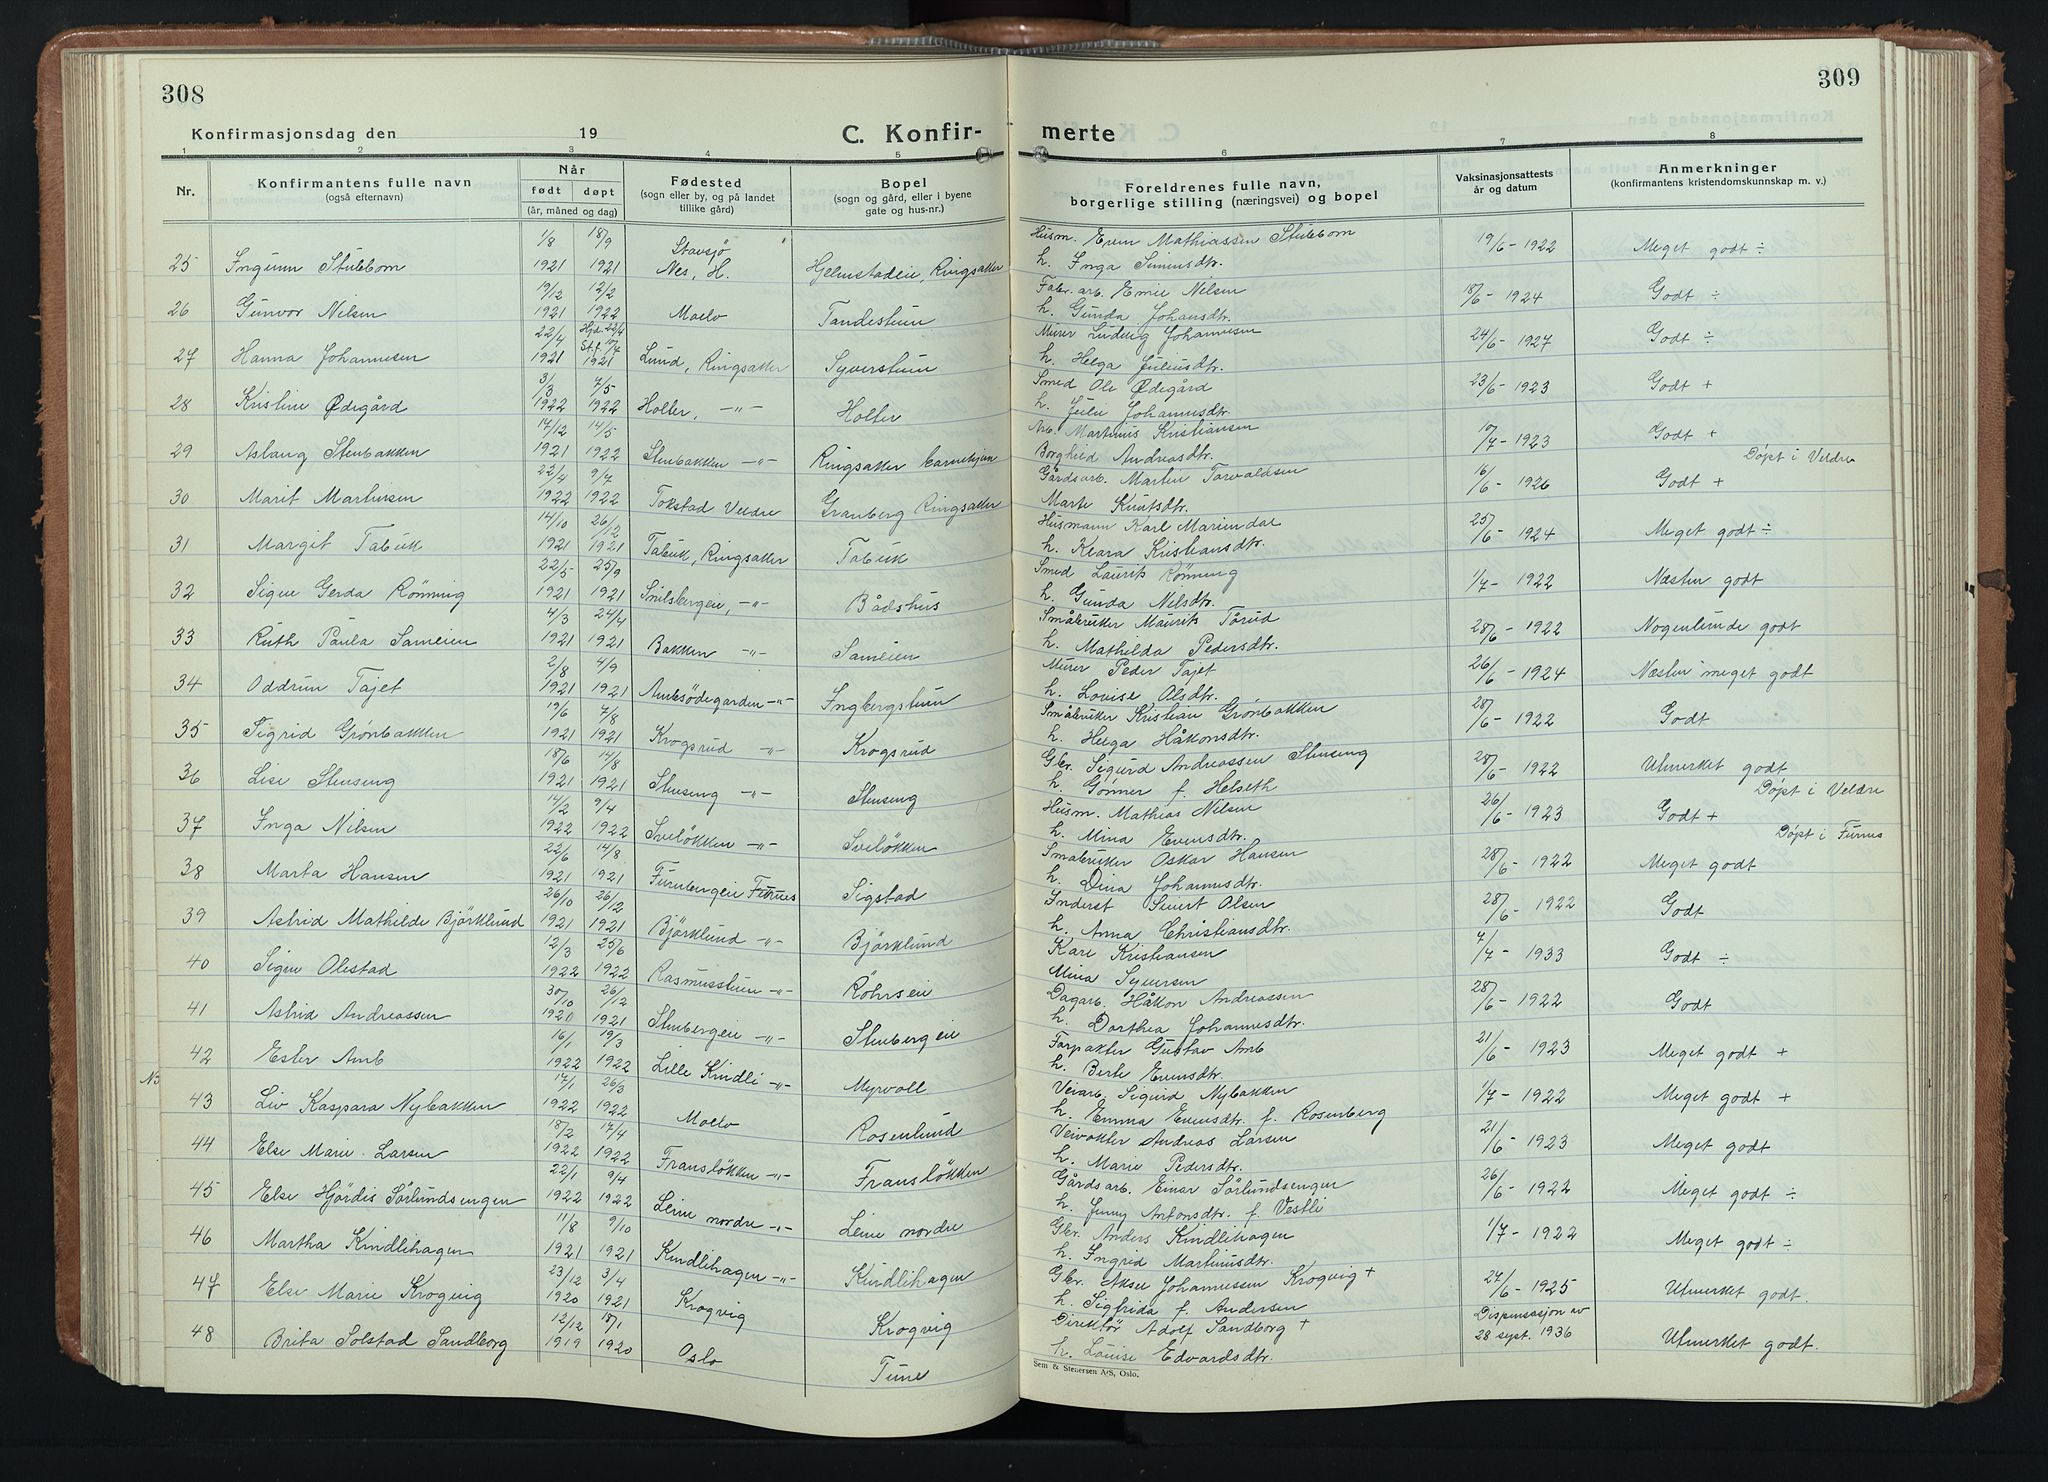 308
309
Konfirmasjonsdag den 19
C. Konfir-
merte
1 2 3 4 5 6 7 8
Nr.
Konfirmantens fulle navn
(også efternavn)
Når
født døpt
(år, måned og dag)
Fødested
(sogn eller by, og på landet
tillike gård)
Bopel
(sogn og gård, eller i byene
gate og hus-nr.)
Foreldrenes fulle navn,
borgerlige stilling (næringsvei) og bopel
Vaksinasjonsattests
år og datum
Anmerkninger
(konfirmantens kristendomskunnskap m. v.)
1/8 18/9 Stavsjö Husm. Even Mathiassen Stubbom
25 Ingunn Stubbom 1921 1921 Nes, H. Hjelmstadeie, Ringsaker h. Inga Simensdtr. 19/6 - 1922 Meget godt ÷
19/12 12/2 Fabr. arb. Emil Nilsen
26 Gunvor Nilsen 1921 1922 Moelv Tandestuen h. Gunda Johansdtr. 18/6 - 1924 Godt ÷
22/4 Hjd. 22/4 St.f. 10/7 Murer Ludvig Johannesen
27 Hanna Johannesen 1921 1921 Lund, Ringsaker Syverstuen h. Helga Juliusdtr. 24/6 - 1927 Godt ÷
3/3 7/5 Smed Ole Ødegård
28 Kristine Ødegård 1922 1922 Holter, -"- Holter h. Julie Johannesdtr. 23/6 - 1923 Godt +
14/12 14/5 Arb. Martinus Kristiansen
29 Aslaug Stenbakken 1921 1922 Stenbakken -"- Ringsaker barnehjem Borghild Andreasdtr. 10/7 - 1923 Godt + Døpt i Veldre
22/4 9/7 Gårdsarb. Martin Torvaldsen
30 Marit Martinsen 1922 1922 Tokstad Veldre Granberg Ringsaker Marte Knutsdtr. 16/6 - 1926 Godt +
14/10 26/12 Husmann Karl Mariendal
31 Margit Tabuk 1921 1921 Tabuk, Ringsaker Tabuk h. Klara Kristiansdtr. 25/6 - 1924 Meget godt ÷
22/5 25/9 Smed Laurits Rönning
32 Signe Gerda Rönning 1921 1921 Snilsbergeie, -"- Bådshus h. Gunda Nilsdtr. 1/7 - 1922 Næsten godt
4/3 24/4 Småbruker Maurits Torud
33 Ruth Paula Sameien 1921 1921 Bakken -"- Sameien h. Mathilda Pedersdtr. 28/6 - 1922 Nogenlunde godt
2/8 4/9 Murer Peder Tajet
34 Oddrun Tajet 1921 1921 Ambsödegarden -"- Ingbergstuen h. Lovise Olsdtr. 26/6 - 1924 Næsten meget godt
19/6 7/8 Småbruker Kristian Grönbakken
35 Sigrid Grönbakken 1921 1921 Krogsrud -"- Krogsrud h. Helga Håkonsdtr. 28/6 - 1922 Godt
18/6 14/8 Gbr. Sigurd Andreassen Stenseng
36 Lise Stenseng 1921 1921 Stenseng -"- Stenseng h. Gönner f. Helseth 28/6 - 1922 Utmerket godt
14/2 9/4 Husm. Mathias Nilsen Døpt i Veldre
37 Inga Nilsen 1922 1922 Sveløkken -"- Sveløkken h. Mina Evensdtr. 26/6 - 1923 Godt +
22/6 14/8 Småbruker Oskar Hansen Døpt i Furnes
38 Marta Hansen 1921 1921 Furubergeie Furnes Sigstad h. Dina Johannesdtr. 28/6 - 1922 Meget godt
26/10 26/12 Inderst Severt Olsen
39 Astrid Mathilde Björklund 1921 1921 Björklund -"- Björklund h. Anna Christiansdtr. 28/6 - 1922 Godt
12/3 25/6 Karl Kristiansen
40 Signe Olestad 1922 1922 Rasmusstuen -"- Röhrseie Mina Syversen 7/7 - 1933 Godt ÷
30/10 26/12 Dagarb. Håkon Andreassen
41 Astrid Andreassen 1920 1921 Stenbergeie -"- Stenbergeie h. Dorthea Johannesdtr. 28/6 - 1922 Godt
16/1 19/3 Forpakter Gustav Amb
42 Ester Amb 1922 1922 Lille Kindli -"- Myrvoll h. Berte Evensdtr. 21/6 - 1923 Meget godt +
17/1 26/3 Veiarb. Sigurd Nybakken
43 Liv Kaspara Nybakken 1922 1922 Moelv Rosenlund h. Emma Evensdtr. f. Rosenberg 1/7 - 1922 Meget godt +
18/2 17/4 Veivokter Andreas Larsen
44 Else Marie Larsen 1922 1922 Fransløkken -"- Fransløkken h. Marie Pedersdtr. 21/6 - 1923 Meget godt
22/1 9/4 Gårdsarb. Einar Sörlundsengen
45 Else Hjördis Sörlundsengen 1922 1922 Leine nordre -"- Leine nordre h. Jenny Antonsdtr. f. Vestli 26/6 - 1922 Meget godt ÷
11/8 9/10 Gbr. Anders Kindlihagen
46 Martha Kindlihagen 1921 1921 Kindlihagen -"- Kindlihagen h. Ingrid Martinusdtr. 1/7 - 1922 Meget godt ÷
23/12 3/4 Gbr. Aksel Johannessen Krogvig +
47 Else Marie Krogvig 1920 1921 Krogvig Krogvig h. Sigfrida f. Andersen 24/6 - 1925 Utmerket godt
12/12 18/1 Direktör Adolf Sandborg + Dispensasjon av
48 Brita Solstad Sandborg 1919 1920 Oslo Tune h. Louise Edvardsdtr. 28 sept. 1936 Utmerket godt.
Sem & Stenersen A/S, Oslo.